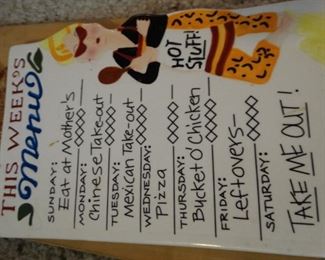 THIS WEEK'S
Menu
HOT
STUFF!
SUNDAY:
Eat at Mother's
MONDAY:
Chinese Take-out
TUESDAY:
Mexican Take-out
WEDNESDAY:
Pizza
THURSDAY:
Bucket O' Chicken
FRIDAY:
Leftovers-
SATURDAY:
TAKE ME OUT!